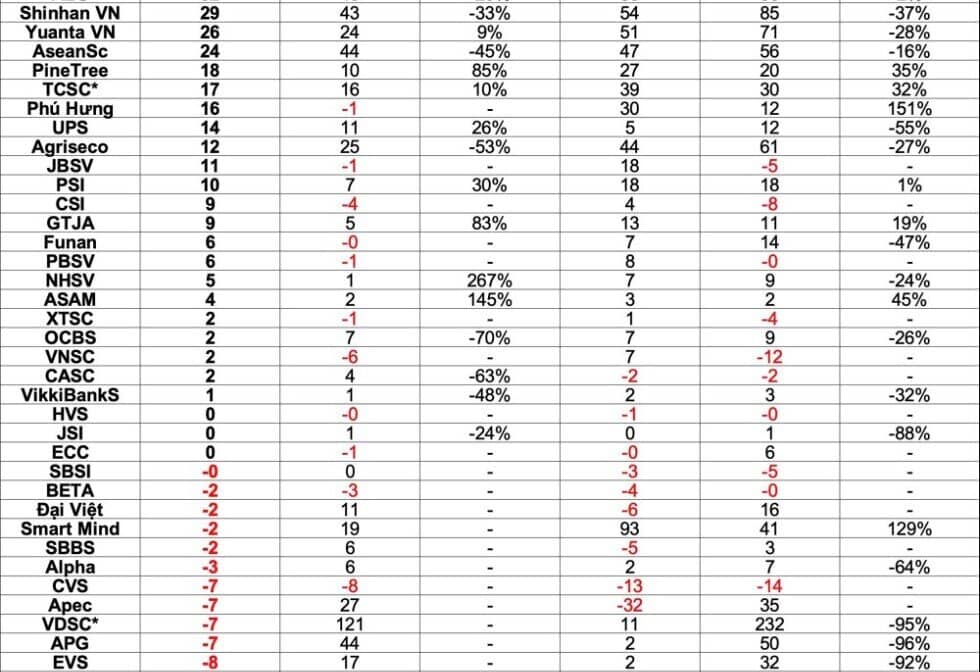 Shinhan VN 29 43 -33% 54 85 -37%
Yuanta VN 26 24 9% 51 71 -28%
AseanSc 24 44 -45% 47 56 -16%
PineTree 18 10 85% 27 20 35%
TCSC* 17 16 10% 39 30 32%
Phú Hưng 16 -1 - 30 12 151%
UPS 14 11 26% 5 12 -55%
Agriseco 12 25 -53% 44 61 -27%
JBSV 11 -1 - 18 -5 -
PSI 10 7 30% 18 18 1%
CSI 9 -4 - 4 -8 -
GTJA 9 5 83% 13 11 19%
Funan 6 -0 - 7 14 -47%
PBSV 6 -1 - 8 -0 -
NHSV 5 1 267% 7 9 -24%
ASAM 4 2 145% 3 2 45%
XTSC 2 -1 - 1 -4 -
OCBS 2 7 -70% 7 9 -26%
VNSC 2 -6 - 7 -12 -
CASC 2 4 -63% -2 -2 -
VikkiBankS 1 1 -48% 2 3 -32%
HVS 0 -0 - -1 -0 -
JSI 0 1 -24% 0 1 -88%
ECC 0 -1 - -0 6 -
SBSI -0 0 - -3 -5 -
BETA -2 -3 - -4 -0 -
Đại Việt -2 11 - -6 16 -
Smart Mind -2 19 - 93 41 129%
SBBS -2 6 - -5 3 -
Alpha -3 6 - 2 7 -64%
CVS -7 -8 - -13 -14 -
Apec -7 27 - -32 35 -
VDSC* -7 121 - 11 232 -95%
APG -7 44 - 2 50 -96%
EVS -8 17 - 2 32 -92%